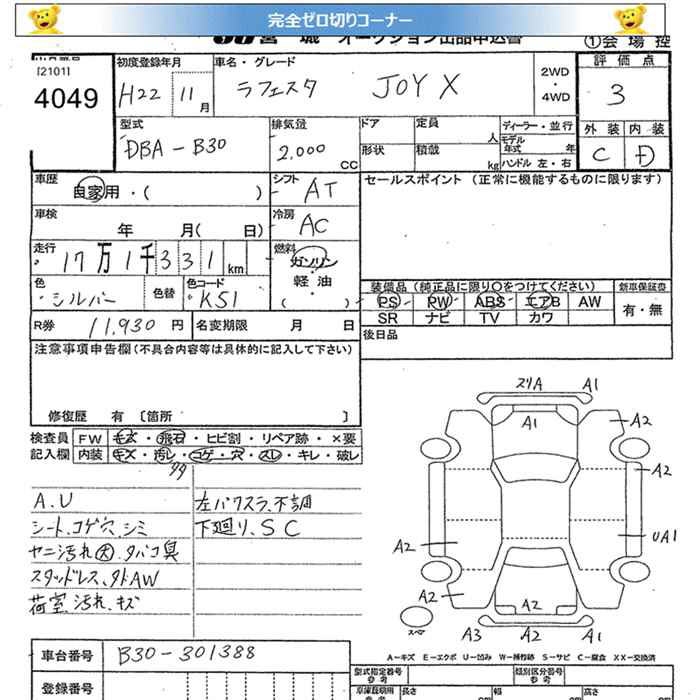 完全ゼロ切りコーナー
宮 城 オークション出品申込書 ①会場控
[2101]
4049
初度登録年月 H22 11月
車名・グレード ラフェスタ JOY X
2WD・4WD
評価点 3
外装 C 内装 D
型式 DBA-B30
排気量 2,000 CC
ドア 定員 人
形状 積載 kg
ディーラー・並行
モデル年式 年
ハンドル 左・右
車歴 自家用・( )
シフト AT
セールスポイント (正常に機能するものに限ります)
車検 年 月( 日)
冷房 AC
走行 17万1千331km
燃料 ガソリン 軽油 ( )
色 シルバー 色替 色コード K51
装備品(純正品に限り○をつけてください) 新車保証書
PS PW ABS エアB AW 有・無
SR ナビ TV カワ
R券 11,930円 名変期限 月 日
後日品
注意事項申告欄(不具合内容等は具体的に記入して下さい)
修復歴 有 〔箇所 〕
検査員 FW キズ・飛石・ヒビ割・リペア跡・×要
記入欄 内装 キズ・汚レ・コゲ・穴・スレ・キレ・破レ
A.U
シート、コゲ穴、シミ
ヤニ汚れ大、タバコ臭
スタッドレス、外AW
荷室、汚れ、キズ
左パワスラ、不調
下廻り、SC
スリA A1
A1 A2
A2
A2 UA1
A2 A2
スペア A3 A2 A1
A-キズ E-エクボ U-凹み W-補修跡 S-サビ C-腐食 XX-交換済
車台番号 B30-301388
登録番号
型式指定番号 参考 類別区分番号 参考
車庫証明用 参考 長さ cm 幅 高さ cm